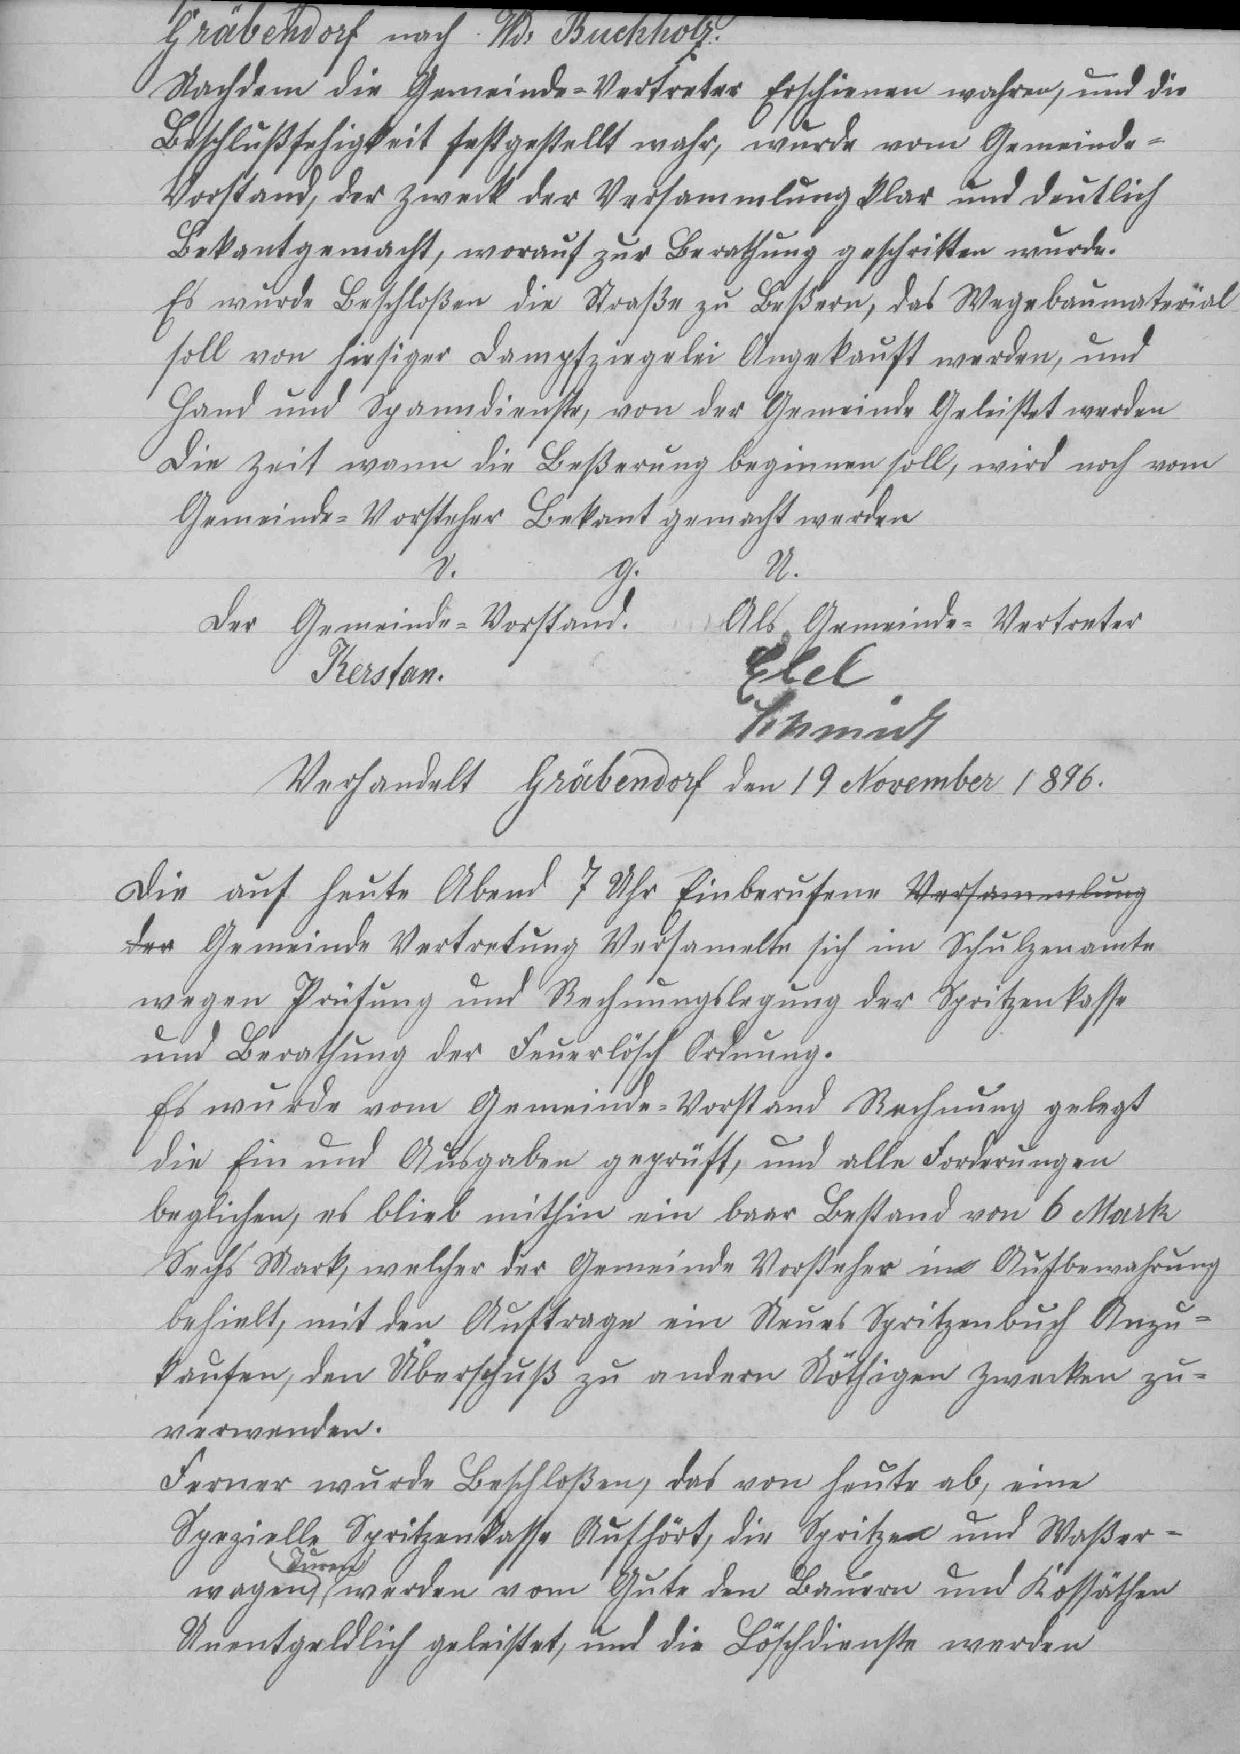 Gräbendorf nach Wd. Buchholz.
Nachdem die Gemeinde=Vertreter Erschienen wahren, und die
Beschlußfehigkeit festgestellt wahr, wurde vom Gemeinde=
Vorstand, der Zweck der Versammlung klar und deutlich
Bekantgemacht, worauf zur Berathung geschritten wurde.
Es wurde Beschloßen die Straße zu Beßern, das Wegebaumaterial
soll von hiesiger Dampfziegelei Angekauft werden, und
Hand und Spanndienste, von der Gemeinde Geleistet werden
Die Zeit wann die Beßerung beginnen soll, wird noch vom
Gemeinde=Vorsteher Bekant gemacht werden
V. g. U.
Der Gemeinde=Vorstand. Als Gemeinde=Vertreter
Kerstan. Ebel
Schmidt
Verhandelt Gräbendorf den 19 November 1896.
Die auf heute Abend 7 Uhr Einberufene Versammlung
der Gemeinde Vertretung Versamelte sich im Schulzenamte
wegen Prüfung und Rechnungslegung der Spritzenkasse
und Berathung der Feuerlösch Ordnung.
Es wurde vom Gemeinde=Vorstand Rechnung gelegt
die Ein und Ausgaben geprüft, und alle Forderungen
beglichen, es blieb mithin ein baar Bestand von 6 Mark
Sechs Mark, welcher der Gemeinde Vorsteher in Aufbewahrung
behielt, mit den Auftrage ein Neues Spritzenbuch Anzu=
kaufen, den Überschuß zu andern Nöthigen Zwecken zu=
verwenden.
Ferner wurde Beschloßen, das von heute ab, eine
Spezielle Spritzenkasse Aufhört, die Spritzen und Waßer=
Turen
wagen werden vom Gute den Bauern und Kossäthen
Unentgeldlich geleistet, und die Löschdienste werden